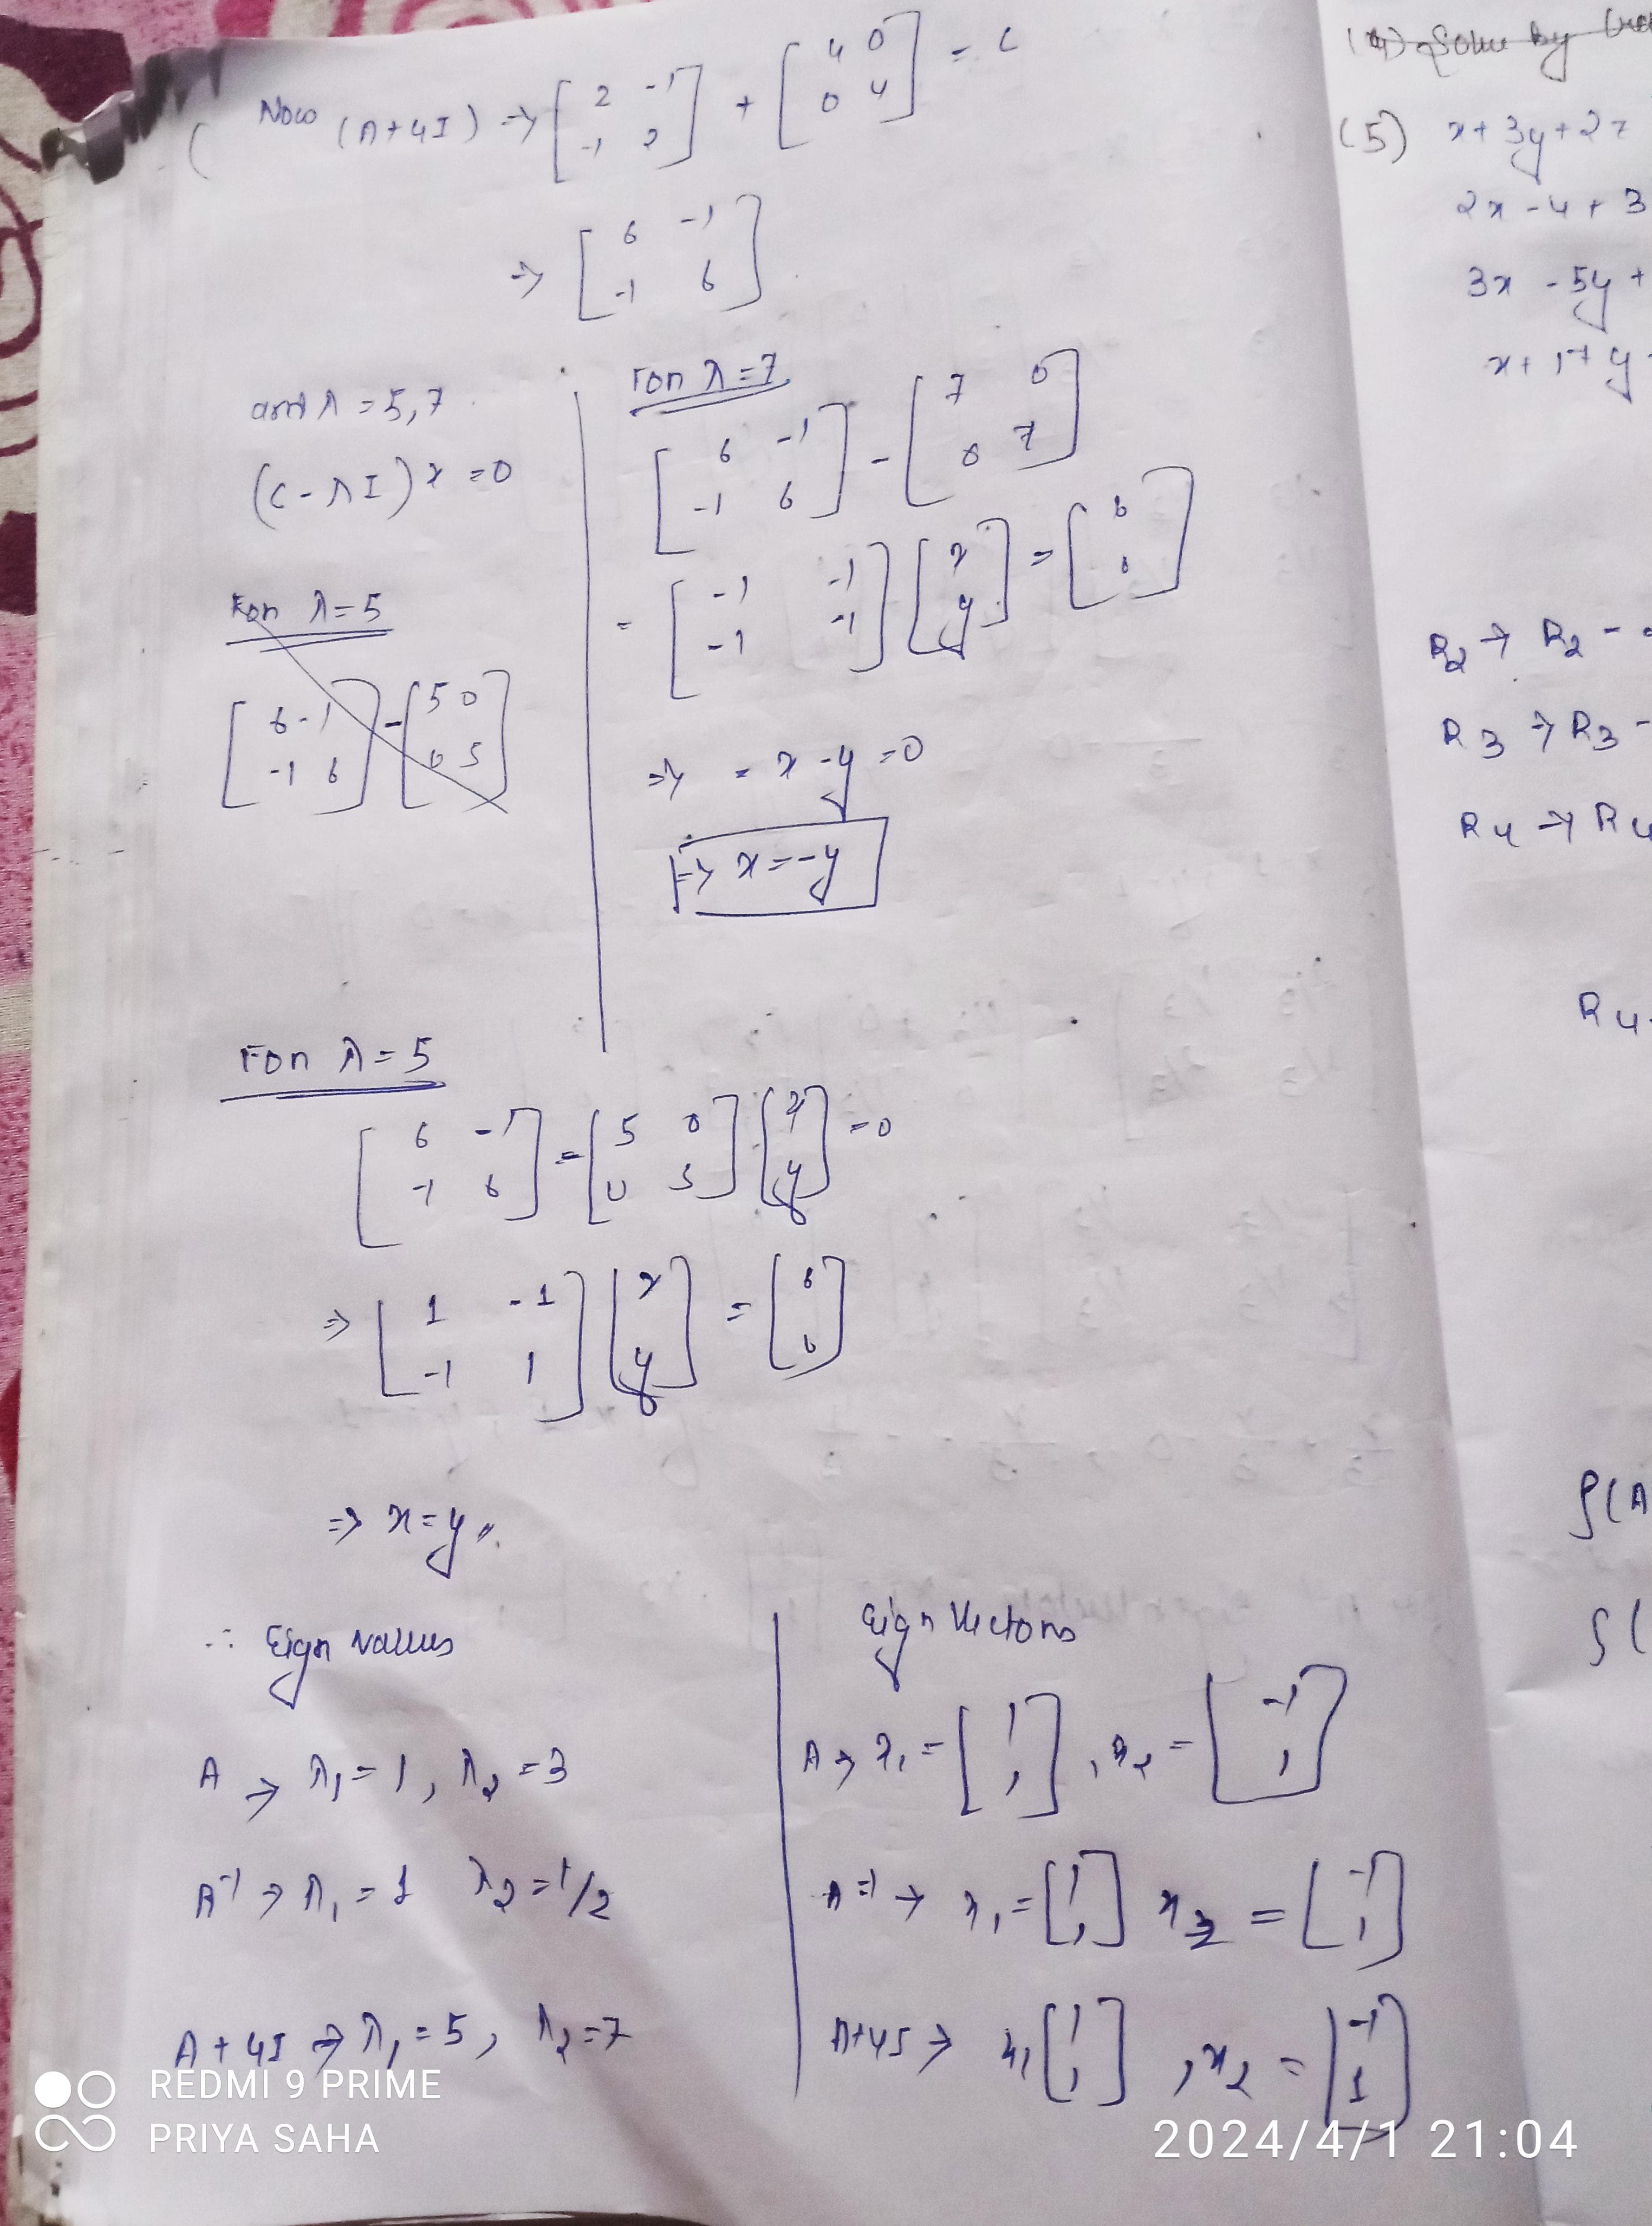 Now (A+4I) => [2 -1
-1 2] + [4 0
0 4] = C
=> [6 -1
-1 6]
and λ = 5, 7
(C-λI)x = 0
For λ=5
[6 -1
-1 6] - [5 0
0 5]
For λ=7
[6 -1
-1 6] - [7 0
0 7]
= [-1 -1
-1 -1] [x
y] = [0
0]
=> -x -y = 0
=> x = -y
For λ = 5
[6 -1
-1 6] - [5 0
0 5] [x
y] = 0
=> [1 -1
-1 1] [x
y] = [0
0]
=> x = y
∴ Eign values
A → λ₁ = 1, λ₂ = 3
A⁻¹ → λ₁ = 1 λ₂ = 1/2
A + 4I → λ₁ = 5, λ₂ = 7
Eign Vectors
A → x₁ = [1
1], x₂ = [-1
1]
A⁻¹ → x₁ = [1
1] x₂ = [-1
1]
A+4I → x₁ [1
1], x₂ = [-1
1]
(4) Solve by
(5) x + 3y + 2z
2x - y + 3
3x - 5y +
x + 17y
R₂ → R₂ -
R₃ → R₃ -
R₄ → R₄
R₄
ρ(A
ρ(
REDMI 9 PRIME
PRIYA SAHA
2024/4/1 21:04